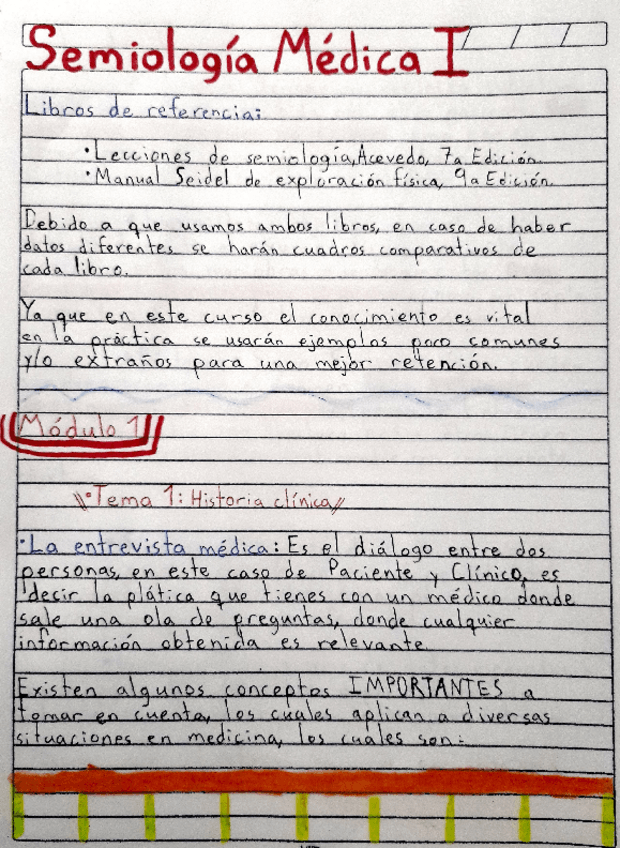 Semiología Médica I
Libros de referencia:
• Lecciones de semiología, Acevedo, 7a Edición.
• Manual Seidel de exploración física, 9a Edición.
Debido a que usamos ambos libros, en caso de haber
datos diferentes se harán cuadros comparativos de
cada libro.
Ya que en este curso el conocimiento es vital
en la práctica se usarán ejemplos poco comunes
y/o extraños para una mejor retención.
Módulo 1
\\• Tema 1: Historia clínica//
• La entrevista médica: Es el diálogo entre dos
personas, en este caso de Paciente y Clínico, es
decir la plática que tienes con un médico donde
sale una ola de preguntas, donde cualquier
información obtenida es relevante.
Existen algunos conceptos IMPORTANTES a
tomar en cuenta, los cuales aplican a diversas
situaciones en medicina, los cuales son: